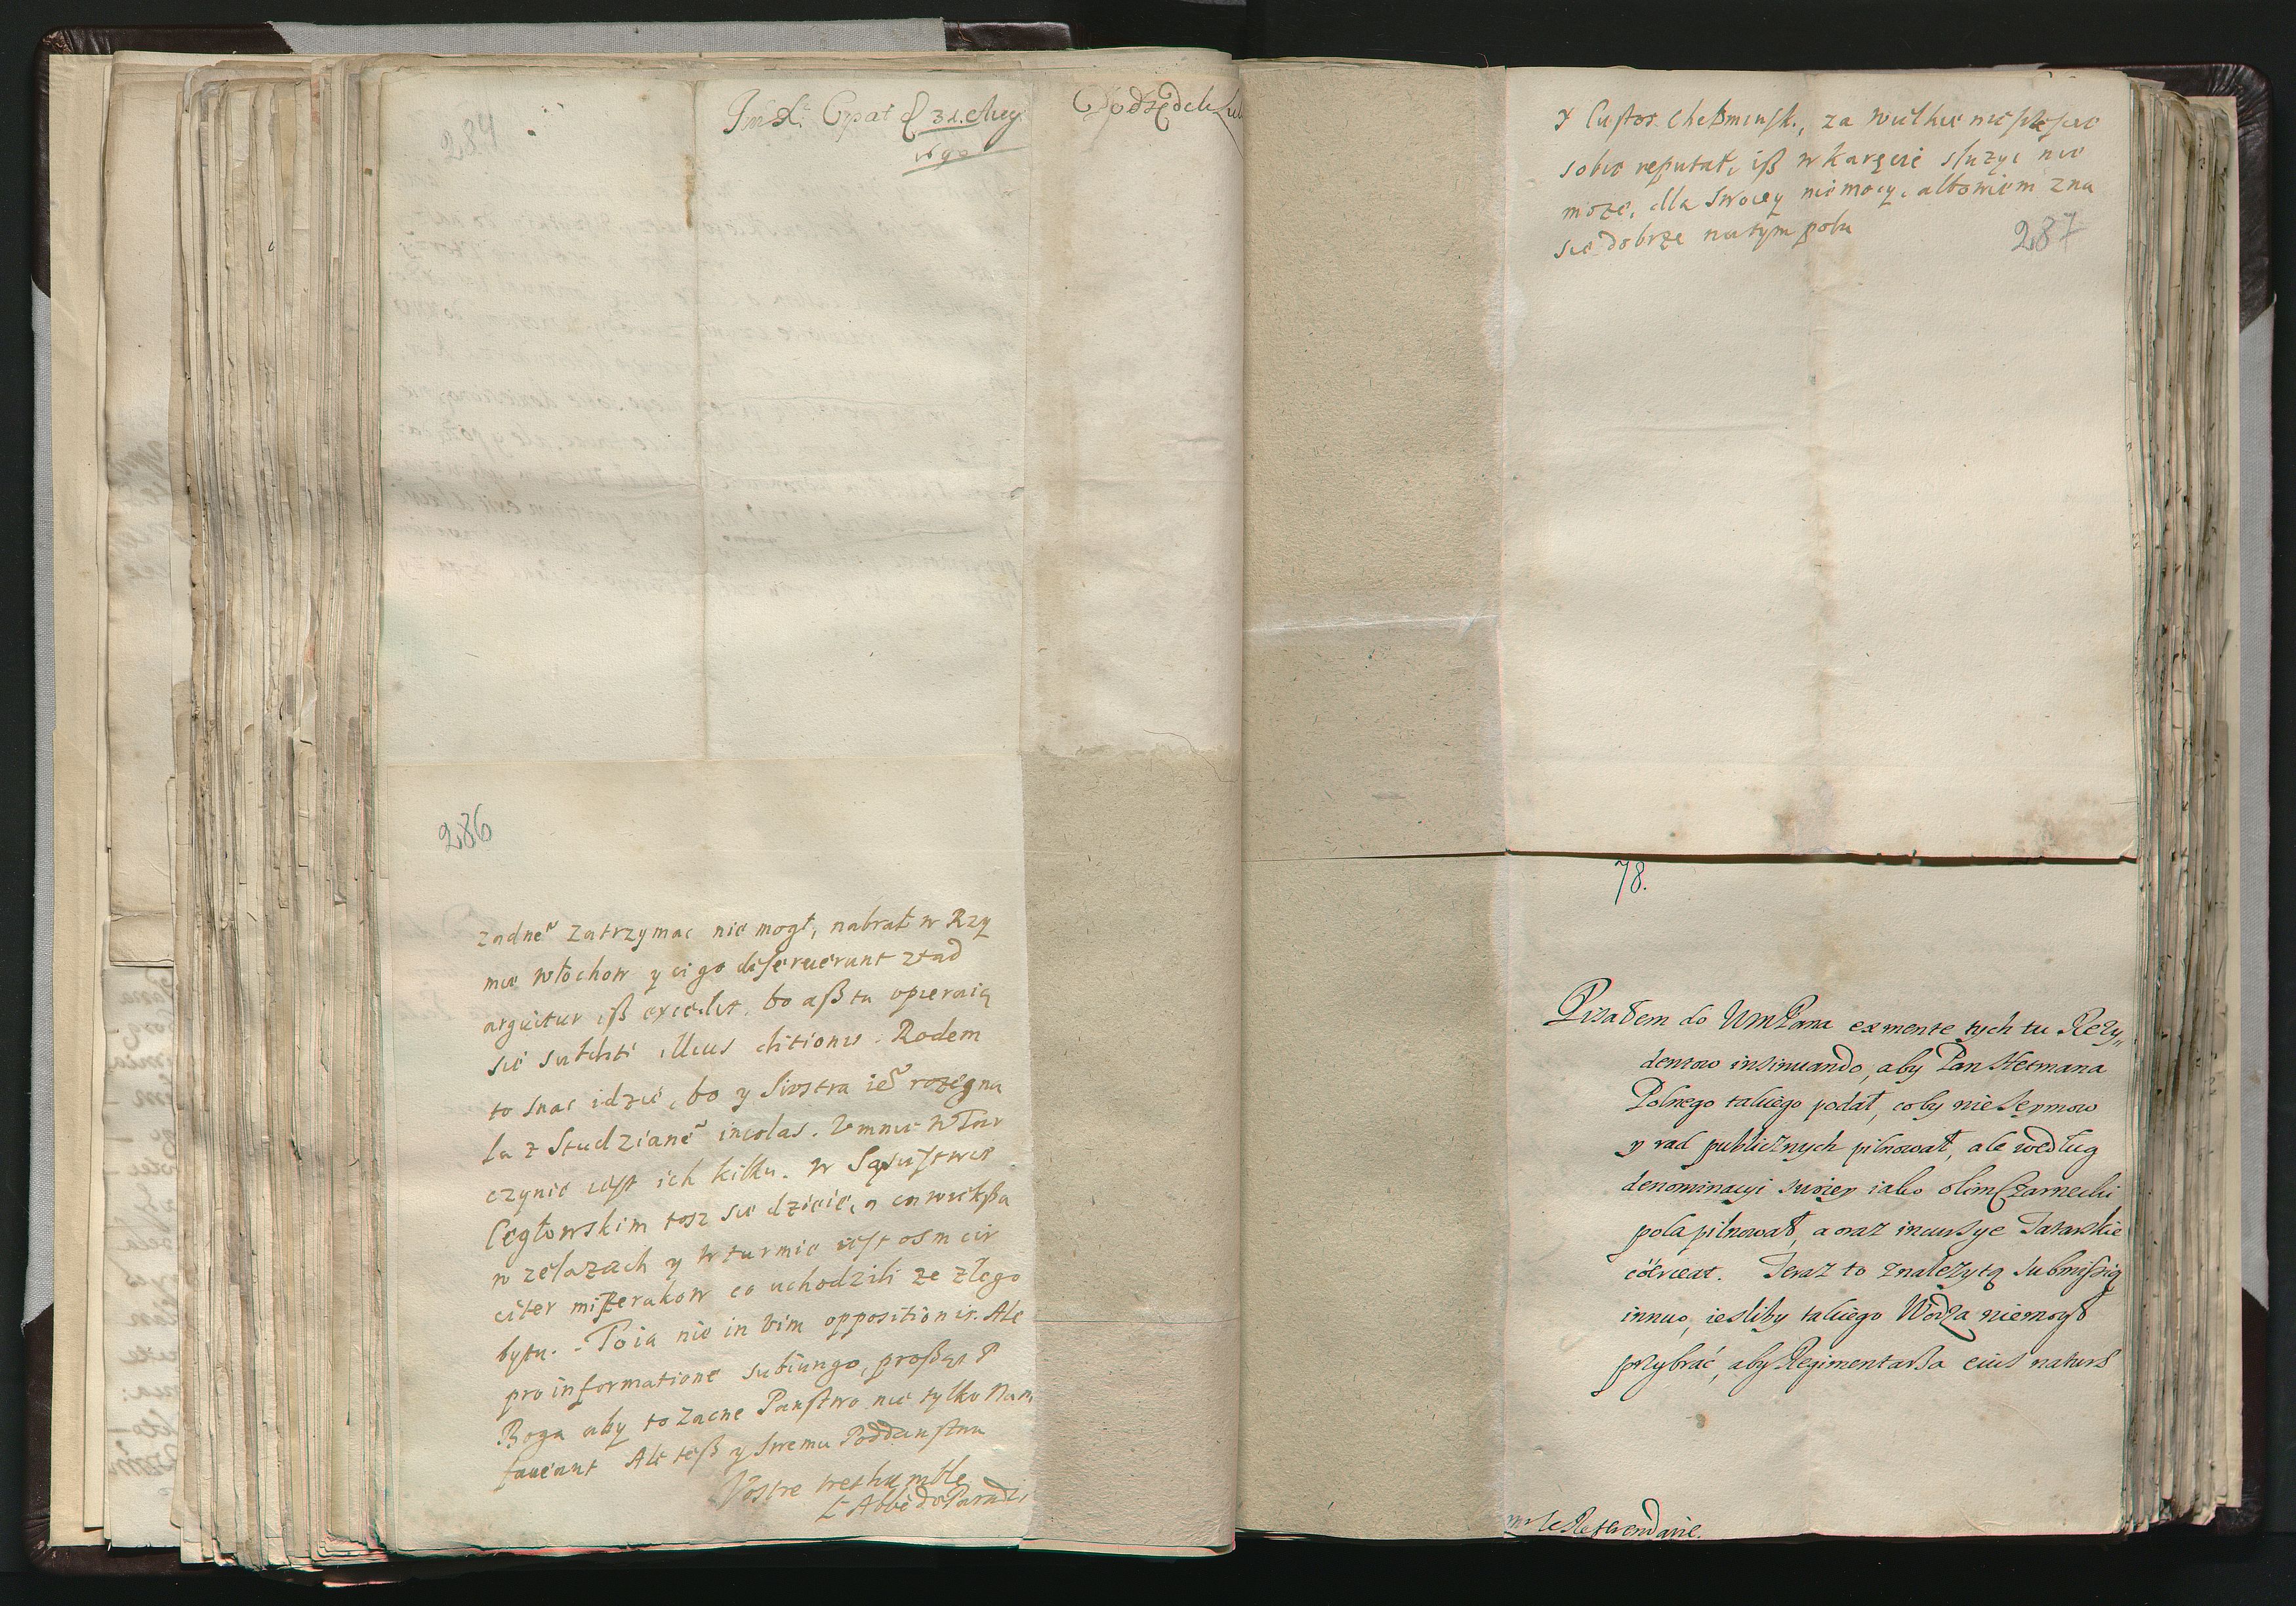 284
31. Aug
1690
286
zadne͠ zatrzymac nie mogł, nabrał w Rzy
mie włochow y ci go deseruerunt ztad
arguitur iß excedit, bo aß tu opieraią
sie subditi illius ditionis. Rodem
to snac idzie, bo y Siostra ie͠ rozegna
la z Studziane͠ incolas. Vmnie w Tur
czynie iest ich kilku. w Sąsiestwie
Cegłowskim tosz sie dzieie, a co wieksza
w zelazach y w turmie iest osm cir
citer mißerakow co uchodzili ze złego
bytu. - To ia nie in vim oppositionis. Ale
pro informatione subiungo, proßąc P
Boga aby to zacne Panstwo nie tylko Nam
faueant Ale teß y swemu Poddanstwu
Vostre treshumble
L'Abbé de Paradis
y Custos Chełminsk., za wielkie nieszczescie
sobie reputat, iß w karęcie służyc nie
moze, dla swoiey niemocy, albowiem zna
sie dobrze na tym polu
287
78.
Pisałem do WmPana ex mente tych tu Rezy„
dentow insinuando, aby Pan Hetmana
Polnego takiego podał, coby nie Seymow
y rad publicznych pilnował, ale według
denominacyi swoiey iako olim Czarnecki
pola pilnował, a oraz incursye Tatarskie
cöerceat. Teraz to z należytą submissią
innuo, iesliby takiego Wodza niemogł
przybrać, aby Regimentarßa eius naturæ
mr le Referendaire.